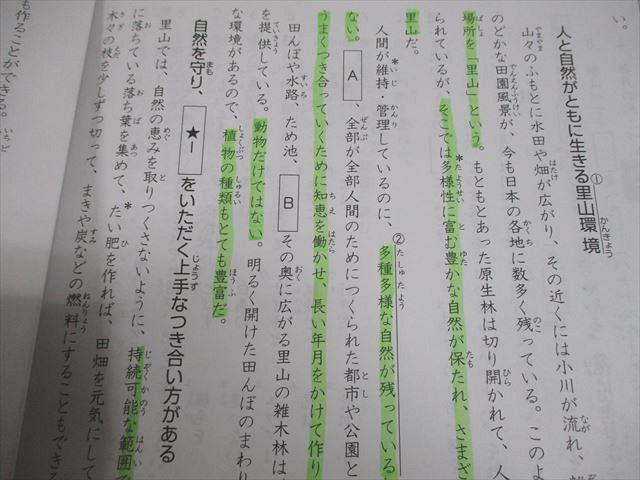 い。
人と自然がともに生きる里山環境①
山々のふもとに水田や畑が広がり、その近くには小川が流れ、
のどかな田園風景が、今も日本の各地に数多く残っている。このよ
場所を「里山」という。もともとあった原生林は切り開かれて、人
られているが、そこでは＊多様性に富む豊かな自然が保たれ、さまざ
里山だ。
人間が＊維持・管理しているのに、②多種多様な自然が残っている
ない。 A 、全部が全部人間のためにつくられた都市や公園と
うまくつき合っていくために知恵を働かせ、長い年月をかけて作り
田んぼや水路、ため池、 B その奥に広がる里山の雑木林は
を提供している。動物だけではない。明るく開けた田んぼのまわり
な環境があるので、植物の種類もとても豊富だ。
自然を守り、 ★Ⅰ をいただく上手なつき合い方がある
里山では、自然の恵みを取りつくさないように、持続可能な範囲で
に落ちている落ち葉を集めて、＊たい肥を作れば、田畑を元気にして
木々の枝を少しずつ切って、まきや炭などの燃料にすることもできる
も作ることができる。